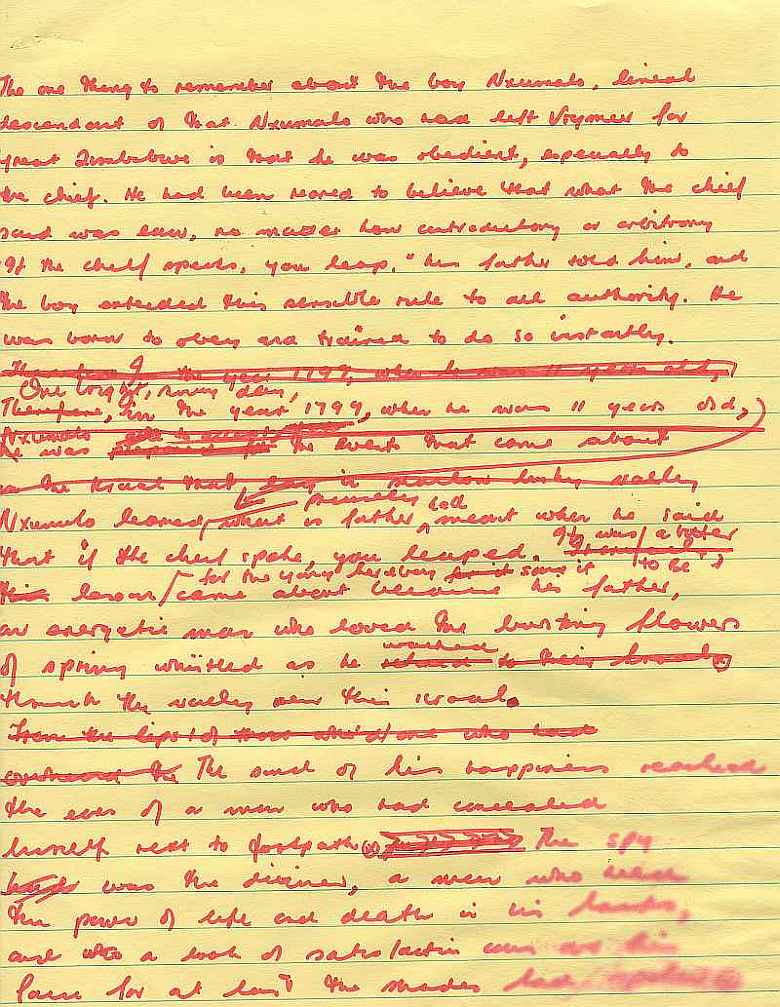 The one thing to remember about the boy Nxumalo, lineal
descendant of that Nxumalo who had left Vrymeer for
great Zimbabwe is that he was obedient, especially to
the chief. He had been reared to believe that what the chief
said was law, no matter how contradictory or arbitrary
"If the chief speaks, you leap," his father told him, and
the boy extended this sensible rule to all authority. He
was born to obey and trained to do so instantly.
the year 1799, when he was 11 years old,
One bright, sunny day,
Therefore, in the year 1799, when he was 11 years old,
Nxumalo
he was prepared for the event that came about
in the kraal that, lay in shallow bushy valley
precisely had
Nxumalo learned what is father meant when he said
that if the chief spoke, you leaped. It was a bitter
for the young boy to be
this lesson came about because his father,
an energetic man who loved the bursting flowers
of spring whistled as he walked to their kraal
through the valley near their kraal.
From the lips of those who had
overheard the The sound of his happiness reached
the ears of a man who had concealed
himself next to footpath The spy
was the diviner, a man who held
the power of life and death in his hands,
and who a look of satisfaction came over his
face for at last the shades had spoken